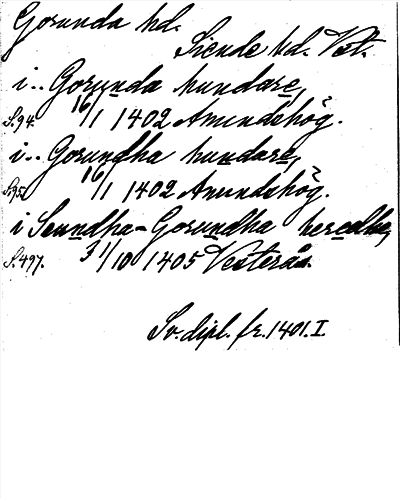 Gorunda hd.
Siende hd. Vst.
i.. Gorunda hundare,
S.94. 16/1 1402 Anundshög.
i.. Gorundha hundare,
S.95. 16/1 1402 Anundshög.
i Seundha-Gorundha heredhe,
S.497. 31/10 1405 Vesterås.
Sv. dipl. fr. 1401. I